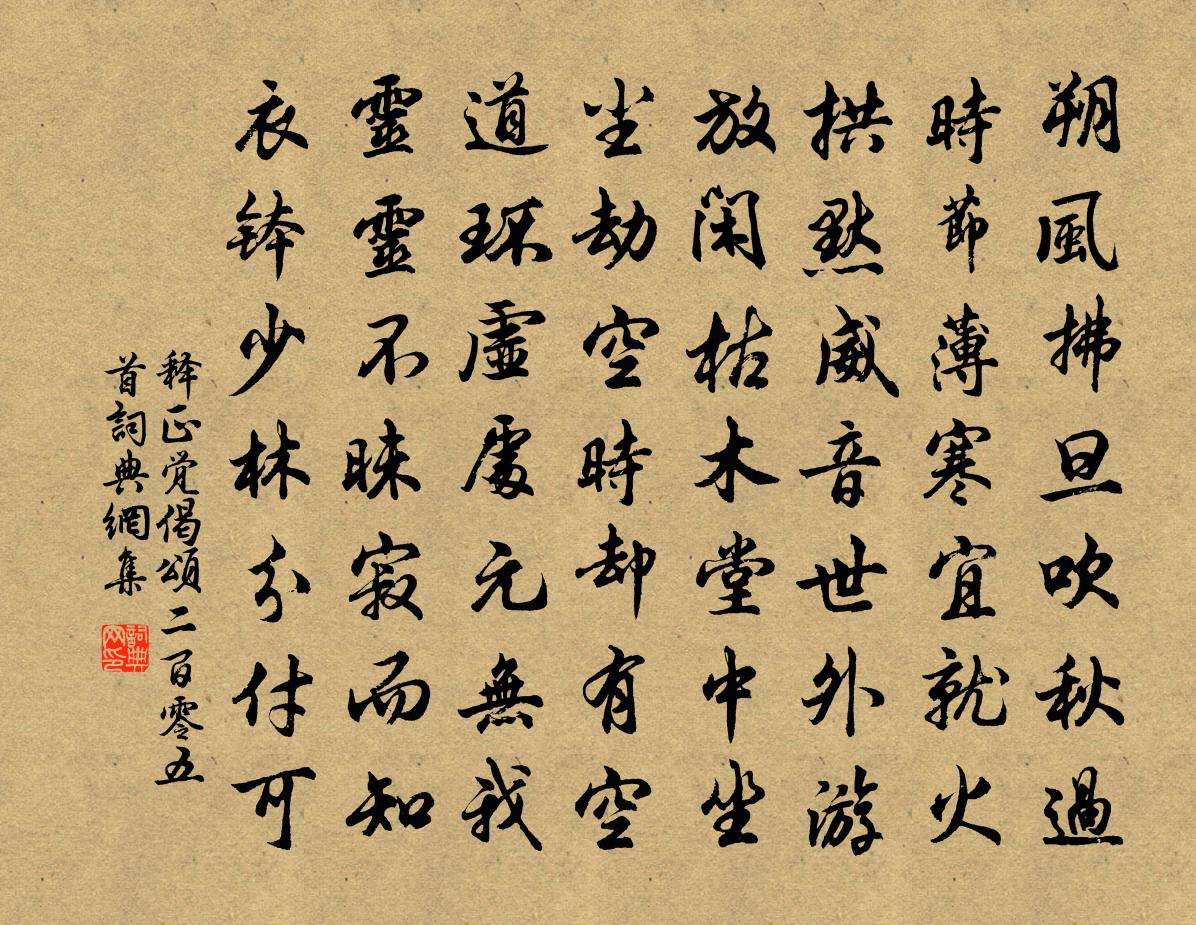 朔風拂旦吹秋過
時節薄寒宜就火
拱默威音世外游
放閑枯木堂中坐
尘劫空時却有空
道环虛處元無我
靈靈不昧寂而知
衣鉢少林分付可
释正觉偈頌二百零五
首詞典網集
詞典网印